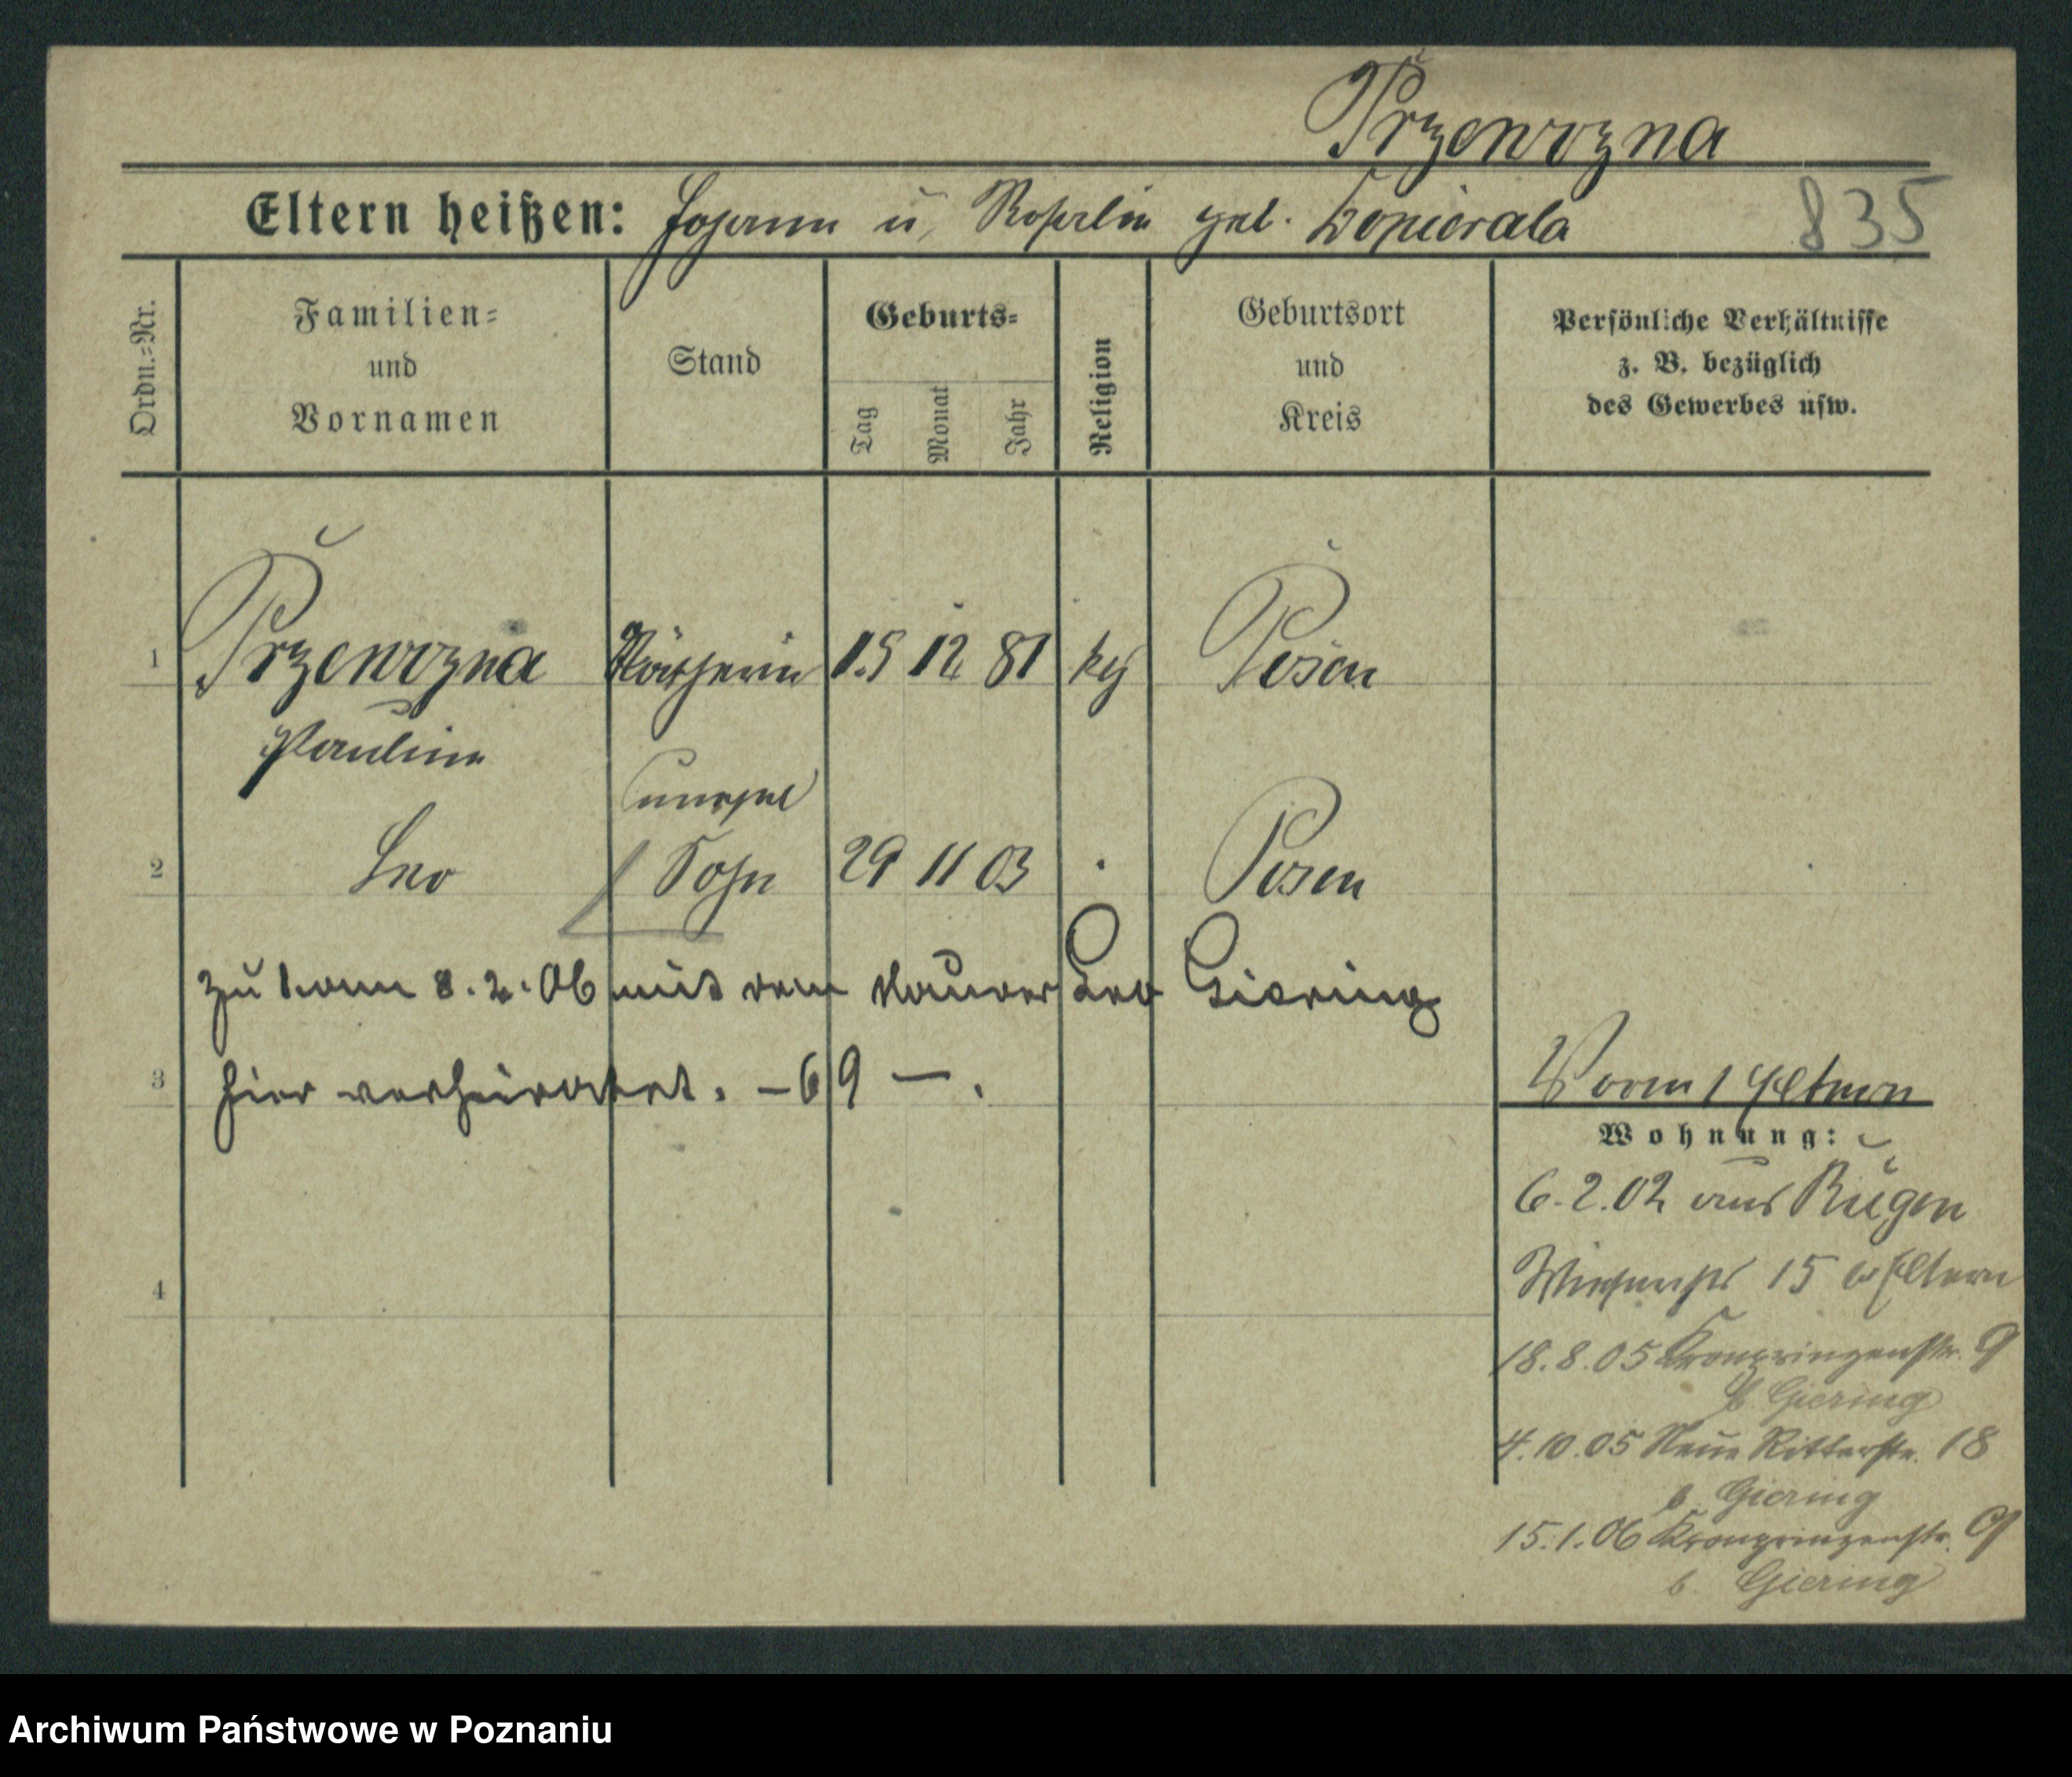 Przewozna
Eltern heißen: Johann u. Rosalie geb. Kopierala 835
Ordn.=Nr. Familien= und Vornamen Stand Geburts= Tag Monat Jahr Religion Geburtsort und Kreis Persönliche Verhältnisse z. B. bezüglich des Gewerbes usw.
1 Przewozna Näherin 15 12 81 kath Posen
Pauline
unehel
2 Leo Sohn 29 11 03 Posen
zu 1 am 8.2.06 mit dem Maurer Leo Giering
3 hier verheiratet. – 69 – .
Vorm Eltern
Wohnung:
6.2.02 aus Rügen
Wiesenstr 15 b Eltern
4
18.8.05 Kronprinzenstr. 9
b. Giering
4.10.05 Neue Ritterstr. 18
b. Giering
15.1.06 Kronprinzenstr. 9
b. Giering
Archiwum Państwowe w Poznaniu